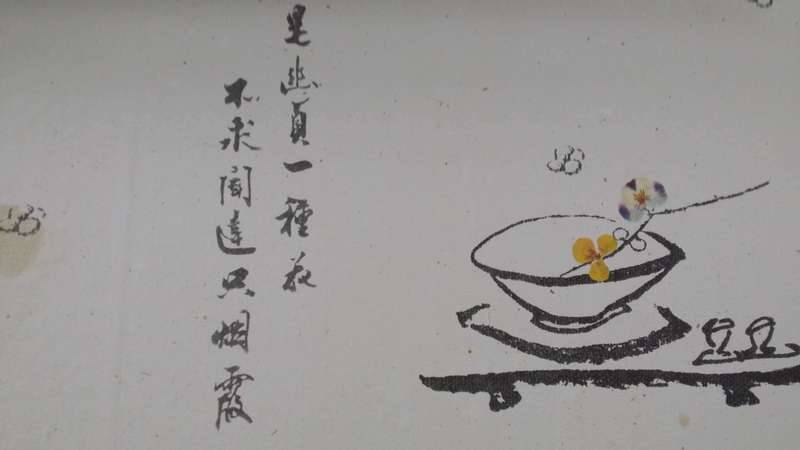 是幽貞一種花
不求聞達只烟霞